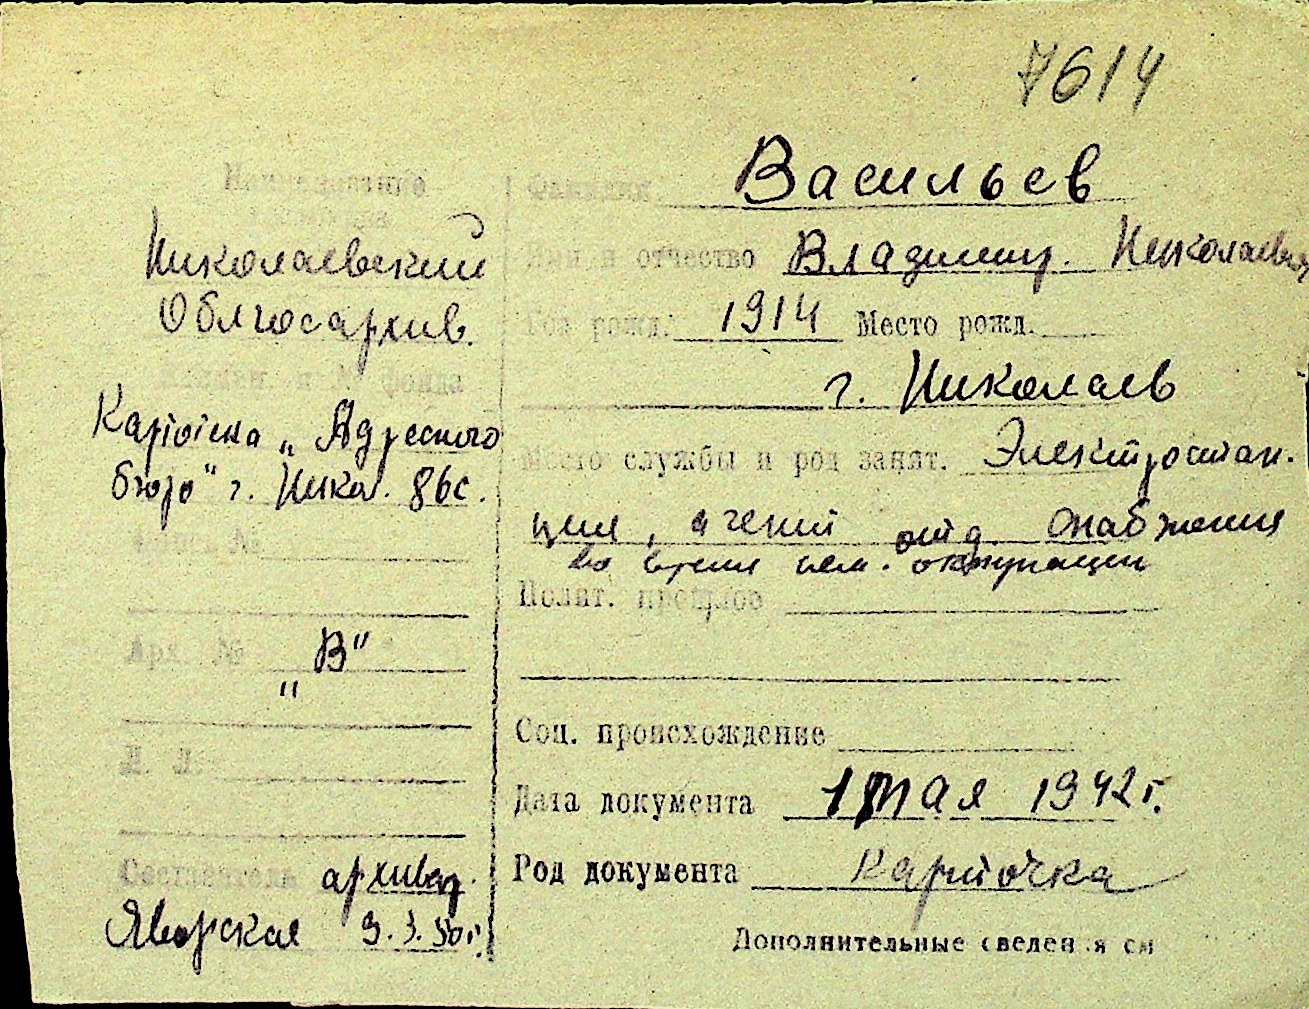 7614
Наименование
архива
Николаевский
Облгосархив.
Назван. и № фонда
Картотека „Адресного
бюро" г. Никол. 86с.
Арх. №
„В"
Л. Л.
Составитель архивар.
Яворская 9.3.50г.
Фамилия Васильев
Имя и отчество Владимир. Николаевич
Год рожд. 1914 Место рожд.
г. Николаев
Место службы и род занят. Электростан.
ция, агент отд. снабжения
во время нем. оккупации
Полит. прошлое
Соц. происхождение
Дата документа 1 мая 1942г.
Род документа карточка
Дополнительные сведения см